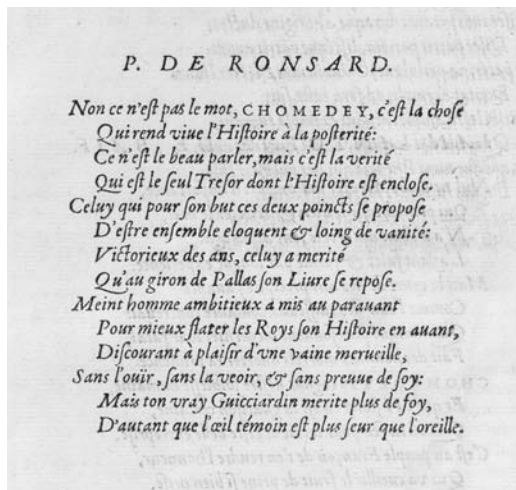 P. DE RONSARD.
Non ce n'eſt pas le mot, CHOMEDEY, c'eſt la choſe
Qui rend viue l'Hiſtoire à la poſterité:
Ce n'eſt le beau parler, mais c'eſt la verité
Qui eſt le ſeul Treſor dont l'Hiſtoire eſt encloſe.
Celuy qui pour ſon but ces deux poincts ſe propoſe
D'eſtre enſemble eloquent & loing de vanité:
Victorieux des ans, celuy a merité
Qu'au giron de Pallas ſon Liure ſe repoſe.
Meint homme ambitieux a mis au parauant
Pour mieux flater les Roys ſon Hiſtoire en auant,
Diſcourant à plaiſir d'vne vaine merueille,
Sans l'ouir, ſans la veoir, & ſans preuue de ſoy:
Mais ton vray Guicciardin merite plus de foy,
D'autant que l'œil témoin eſt plus ſeur que l'oreille.